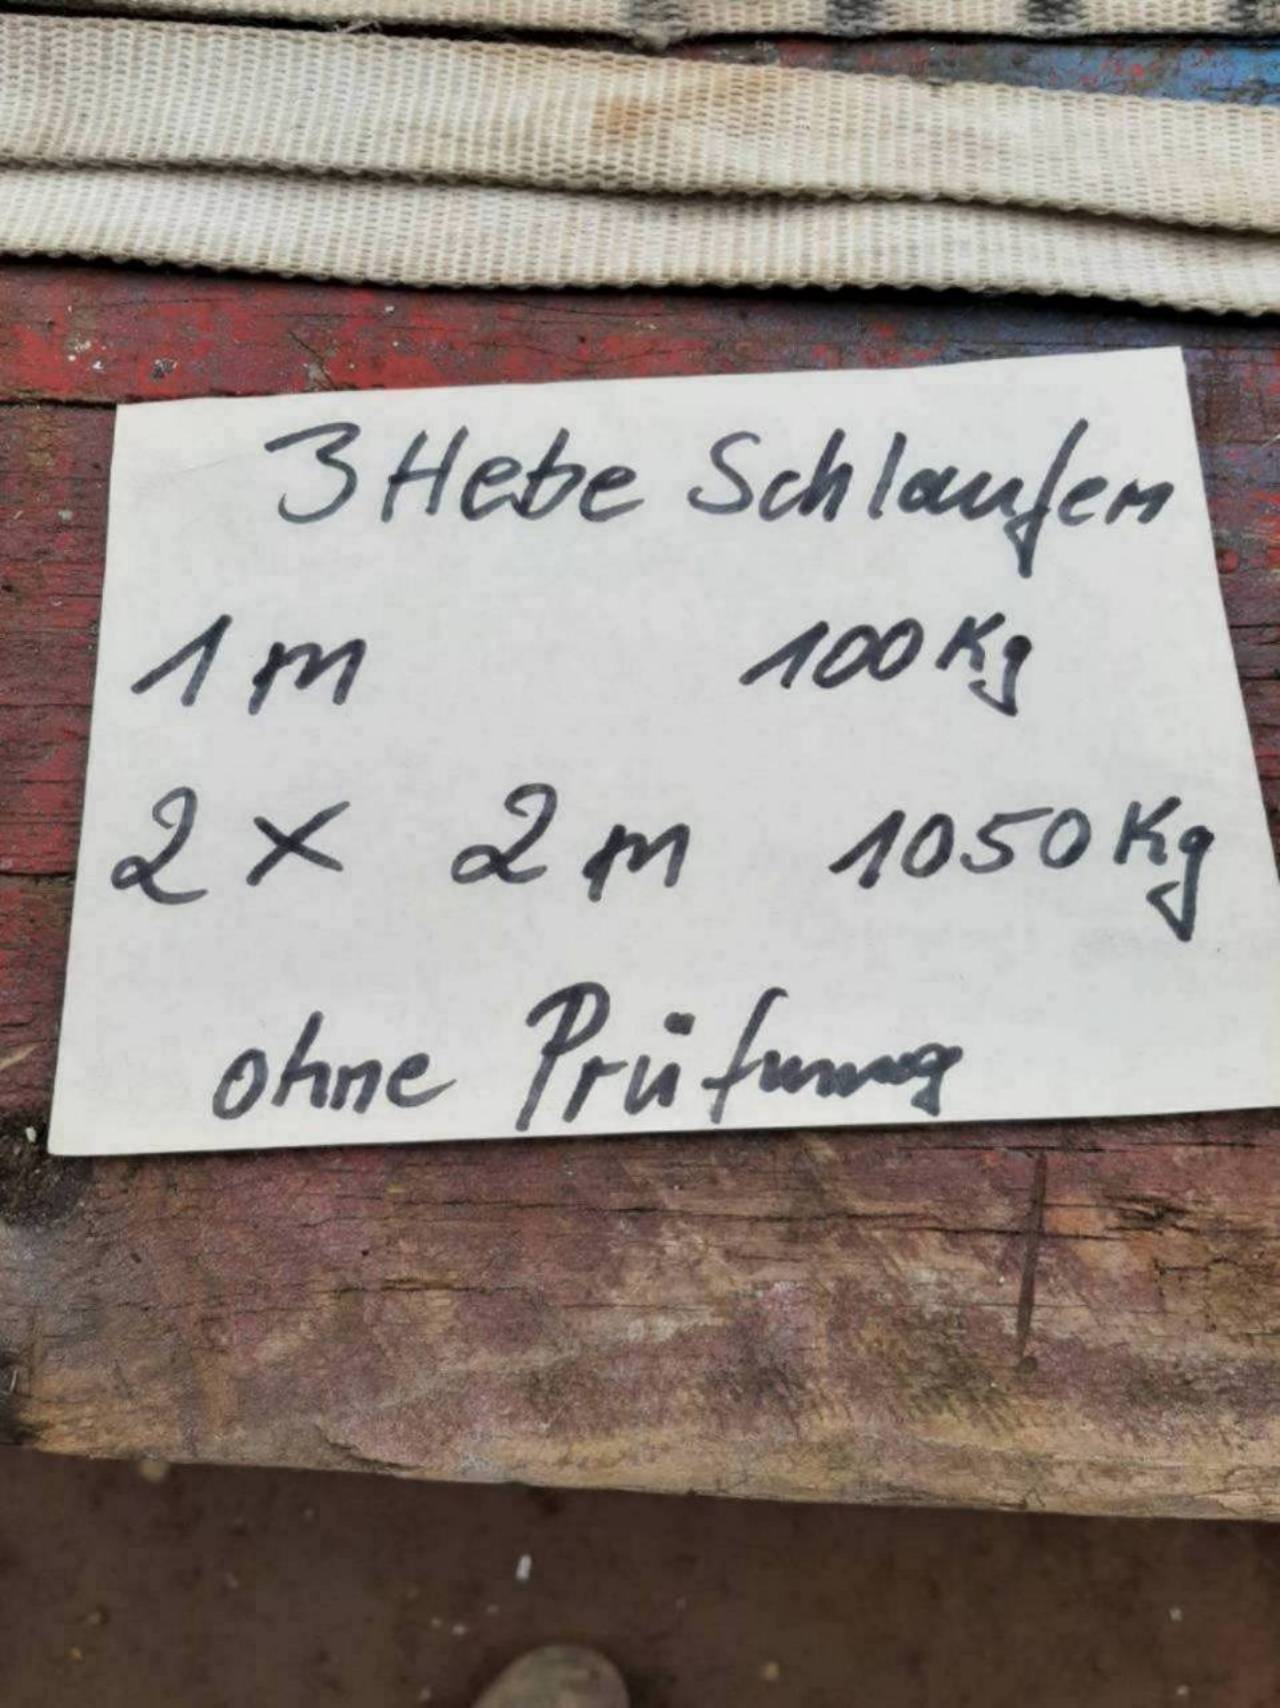 3 Hebe Schlaufen
1 m 100 Kg
2 x 2 m 1050 Kg
ohne Prüfung